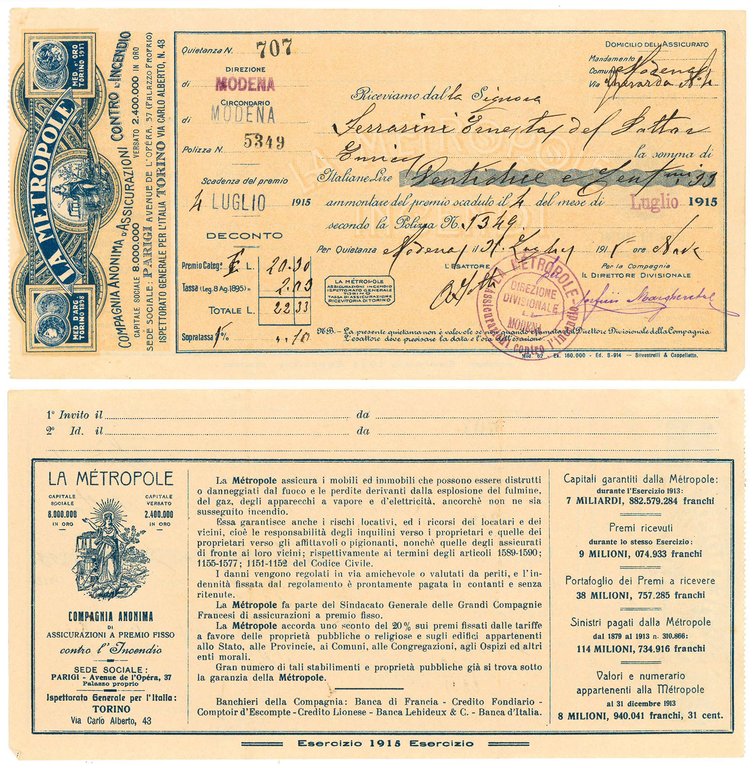 MED. D'ORO TORINO 1911
LA METROPOLE
MED. D'ARG. TORINO 1898
COMPAGNIA ANONIMA D'ASSICURAZIONI CONTRO L'INCENDIO
CAPITALE SOCIALE 8.000.000 VERSATO 2.400.000 IN ORO
SEDE SOCIALE: PARIGI AVENUE DE L'OPÉRA, 37 (PALAZZO PROPRIO)
ISPETTORATO GENERALE PER L'ITALIA TORINO VIA CARLO ALBERTO, N. 43
Quietanza N. 707
DIREZIONE
di MODENA
CIRCONDARIO
di MODENA
Polizza N. 5349
Scadenza del premio
4 LUGLIO 1915
DECONTO
Premio Categ. L. 20.30
Tassa (Leg. 8 Ag. 1895) » 2.03
TOTALE L. 22.33
Soprattassa
DOMICILIO DELL'ASSICURATO
Mandamento
Comune Modena
Via
Riceviamo dalla Signora
Serrasini Ernesta del Dottor
Enrico la somma di
Italiane Lire Ventidue e Cent.mi 33
ammontare del premio scaduto il 4 del mese di Luglio 1915
secondo la Polizza N. 5349
Per Quietanza Modena il 31 Luglio 1915 ore Nove
L'ESATTORE
Per la Compagnia
IL DIRETTORE DIVISIONALE
LA MÉTROPOLE
ASSICURAZIONI INCENDIO
ISPETTORATO GENERALE
TORINO
TASSA DI ASSICURAZIONE
RICEVITORIA DI TORINO
LA METROPOLE
DIREZIONE
DIVISIONALE
DI
MODENA
Assicurazioni contro l'incendio
NB. - La presente quietanza non è valevole se non quando firmata dal Direttore Divisionale della Compagnia.
L'esattore deve precisare la data e l'ora dell'esazione.
Mod. 82. Ex. 160.000 - Ed. S-914 - Silvestrelli & Cappelletto.
1º Invito il da
2º Id. il da
LA MÉTROPOLE
CAPITALE SOCIALE 8.000.000 IN ORO
CAPITALE VERSATO 2.400.000 IN ORO
COMPAGNIA ANONIMA
DI
ASSICURAZIONI A PREMIO FISSO
contro l'Incendio
SEDE SOCIALE:
PARIGI - Avenue de l'Opéra, 37
Palazzo proprio
Ispettorato Generale per l'Italia:
TORINO
Via Carlo Alberto, 43
La Métropole assicura i mobili ed immobili che possono essere distrutti
o danneggiati dal fuoco e le perdite derivanti dalla esplosione del fulmine,
del gaz, degli apparecchi a vapore e d'elettricità, ancorchè non ne sia
susseguito incendio.
Essa garantisce anche i rischi locativi, ed i ricorsi dei locatari e dei
vicini, cioè le responsabilità degli inquilini verso i proprietari e quelle dei
proprietari verso gli affittavoli o pigionanti, nonchè quelle degli assicurati
di fronte ai loro vicini; rispettivamente ai termini degli articoli 1589-1590;
1155-1577; 1151-1152 del Codice Civile.
I danni vengono regolati in via amichevole o valutati da periti, e l'in-
dennità fissata dal regolamento è prontamente pagata in contanti e senza
ritenute.
La Métropole fa parte del Sindacato Generale delle Grandi Compagnie
Francesi di assicurazioni a premio fisso.
La Métropole accorda uno sconto del 20% sui premi fissati dalle tariffe
a favore delle proprietà pubbliche o religiose e sugli edifici appartenenti
allo Stato, alle Provincie, ai Comuni, alle Congregazioni, agli Ospizi ed altri
enti morali.
Gran numero di tali stabilimenti e proprietà pubbliche già si trova sotto
la garanzia della Métropole.
Banchieri della Compagnia: Banca di Francia - Credito Fondiario -
Comptoir d'Escompte - Credito Lionese - Banca Lehideux & C. - Banca d'Italia.
Capitali garantiti dalla Métropole:
durante l'Esercizio 1913:
7 MILIARDI, 882.579.284 franchi
Premi ricevuti
durante lo stesso Esercizio:
9 MILIONI, 074.933 franchi
Portafoglio dei Premi a ricevere
38 MILIONI, 757.285 franchi
Sinistri pagati dalla Métropole
dal 1879 al 1913 n. 310.866:
114 MILIONI, 734.916 franchi
Valori e numerario
appartenenti alla Métropole
al 31 dicembre 1913
8 MILIONI, 940.041 franchi, 31 cent.
Esercizio 1915 Esercizio